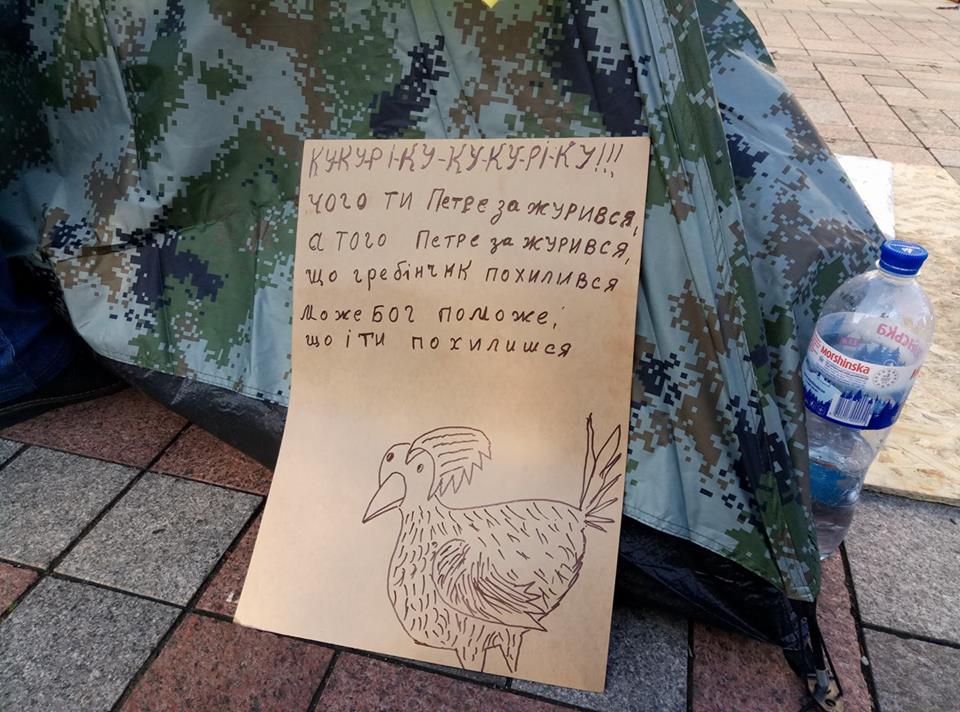 КУКУРІ-КУ-КУ-КУ-РІ-КУ!!!
ЧОГО ТИ Петре зажурився,
а того Петре зажурився,
що гребінчик похилився
може БОГ поможе,
що і ти похилишся
Morshinska